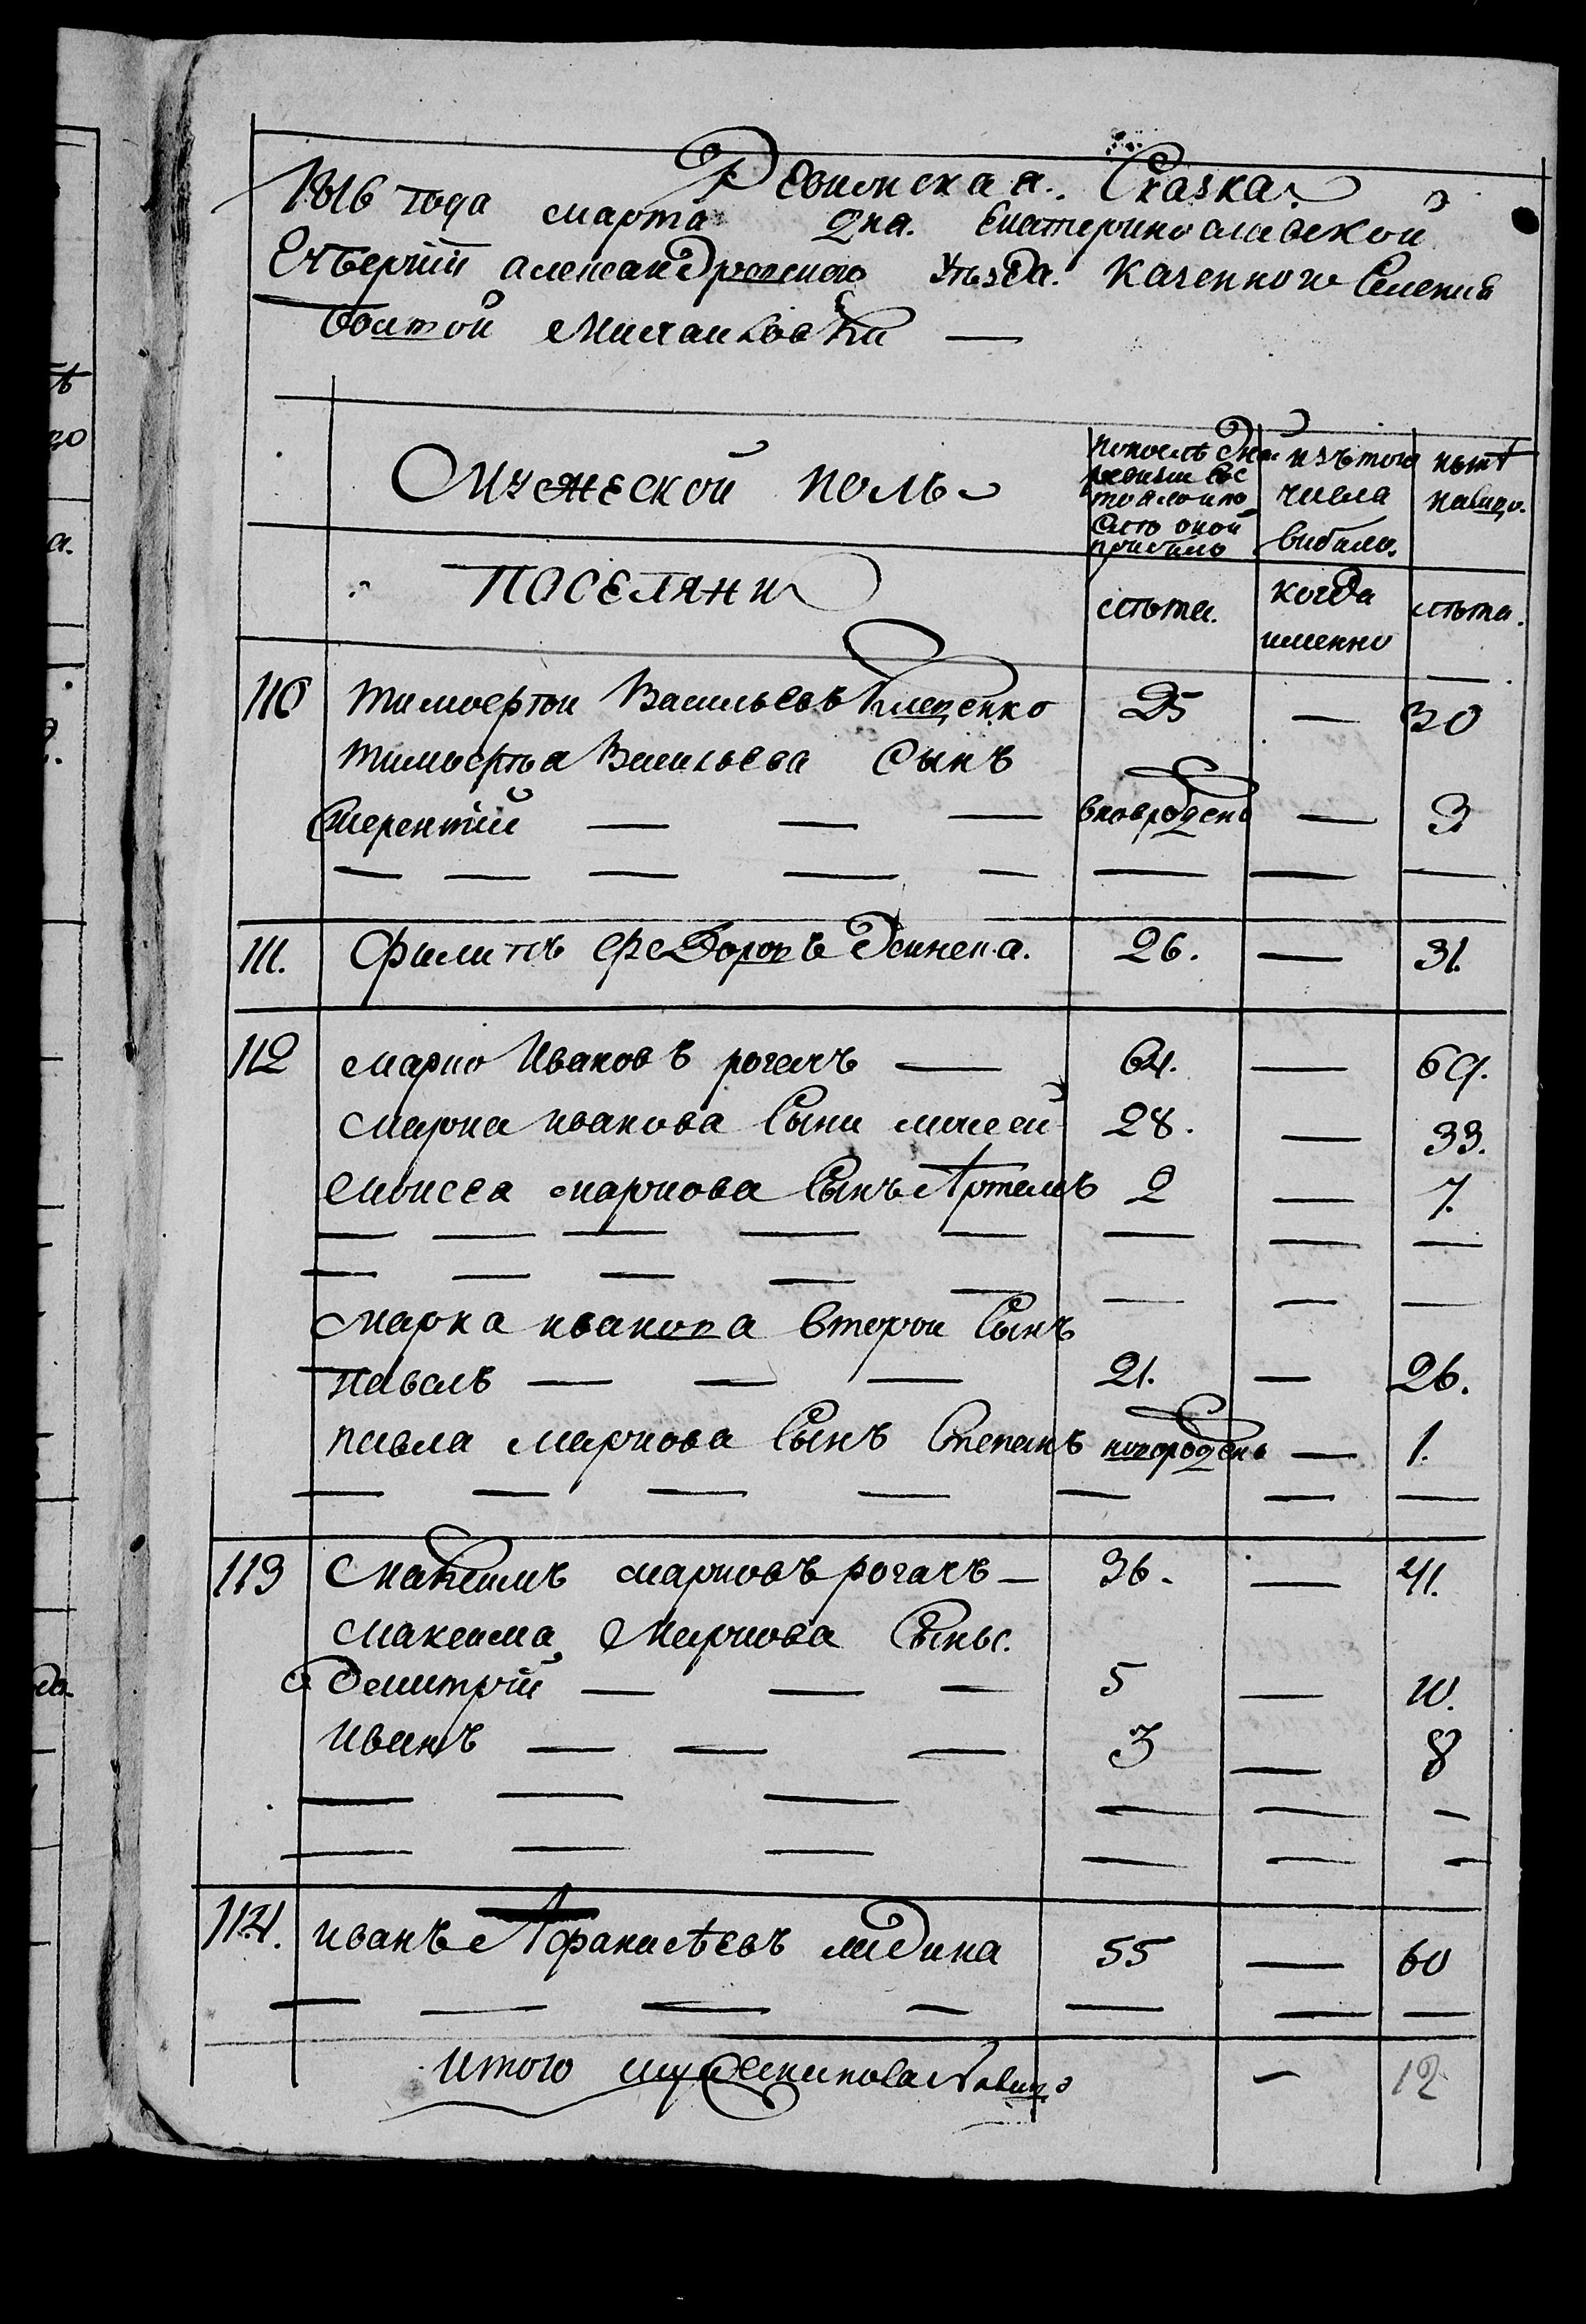 Ревизская. Сказка.
1816 года марта дня. Екатеринославской
Губернии александровскаго уѣзда. Казенного Селения
болшой Михаиловки —
Мужеской полъ
по последней ревизии состояло и после оной прибыло
изъ того числа выбыло.
ныне налицо.
поселяни
лѣта.
когда именно
лѣта.
110 тимофеи Васильевъ Клещенко 25 — 30
тимофея Васильева Сынъ
терентии — — — вноврожденъ — 3
111. Филипъ Федоровъ 26. — 31.
112 марко Ивановъ рогачъ — 64. — 69.
марка иванова Сыни моисеи 28. — 33.
Моисея маркова Сынъ Артемъ 2 — 7.
марка иванова второи Сынъ
павелъ — — — 21. — 26.
павла маркова Сынъ Степанъ новорожденъ — 1.
113 Максимъ марковъ рогачъ — 36. — 41.
максима Маркова Сыны.
Демитрии — — — 5 — 10.
иванъ — — — 3 — 8
114. иванъ Афанасьевъ лидина 55 — 60
итого мужеска пола налицо — 12